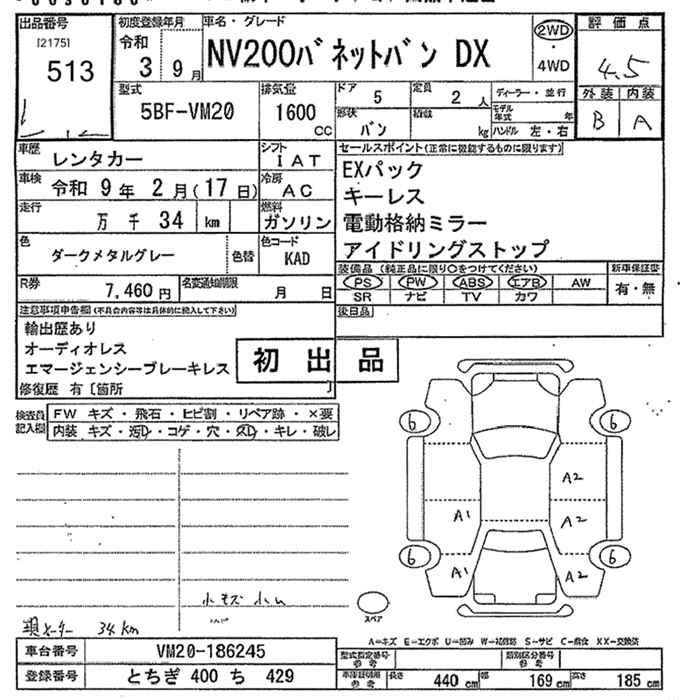 出品番号
[2175]
513
初度登録年月
令和
3 9月
車名・グレード
NV200バネットバン DX
2WD
・
4WD
評価点
4.5
外装 内装
B A
型式
5BF-VM20
排気量
1600
CC
ドア
5
定員
2 人
ディーラー・並行
形状
バン
積載
kg
モデル
年式 年
ハンドル 左・右
車歴
レンタカー
シフト
IAT
車検
令和 9年 2月(17日)
冷房
AC
走行
万 千 34 km
燃料
ガソリン
色
ダークメタルグレー
色替
色コード
KAD
R券
7,460円
名変通知期限
月 日
セールスポイント(正常に機能するものに限ります)
EXパック
キーレス
電動格納ミラー
アイドリングストップ
装備品(純正品に限り○をつけてください)
PS PW ABS エアB AW
SR ナビ TV カワ
新車保証書
有・無
後日品
注意事項申告欄(不具合内容等は具体的に記入して下さい)
輸出歴あり
オーディオレス
エマージェンシーブレーキレス
修復歴 有〔箇所 〕
初出品
検査員
記入欄
FW キズ・飛石・ヒビ割・リペア跡・×要
内装 キズ・汚れ・コゲ・穴・欠品・キレ・破レ
6
6
6
6
A2
A1
A2
A1
A2
小キズ 小凹
現メーター 34km
スペア
A=キズ E=エクボ U=凹み W=補修跡 S=サビ C=腐食 XX=交換済
車台番号
VM20-186245
登録番号
とちぎ 400 ち 429
型式指定番号
参考
類別区分番号
参考
車庫証明用
参考
長さ 440 cm 幅 169 cm 高さ 185 cm